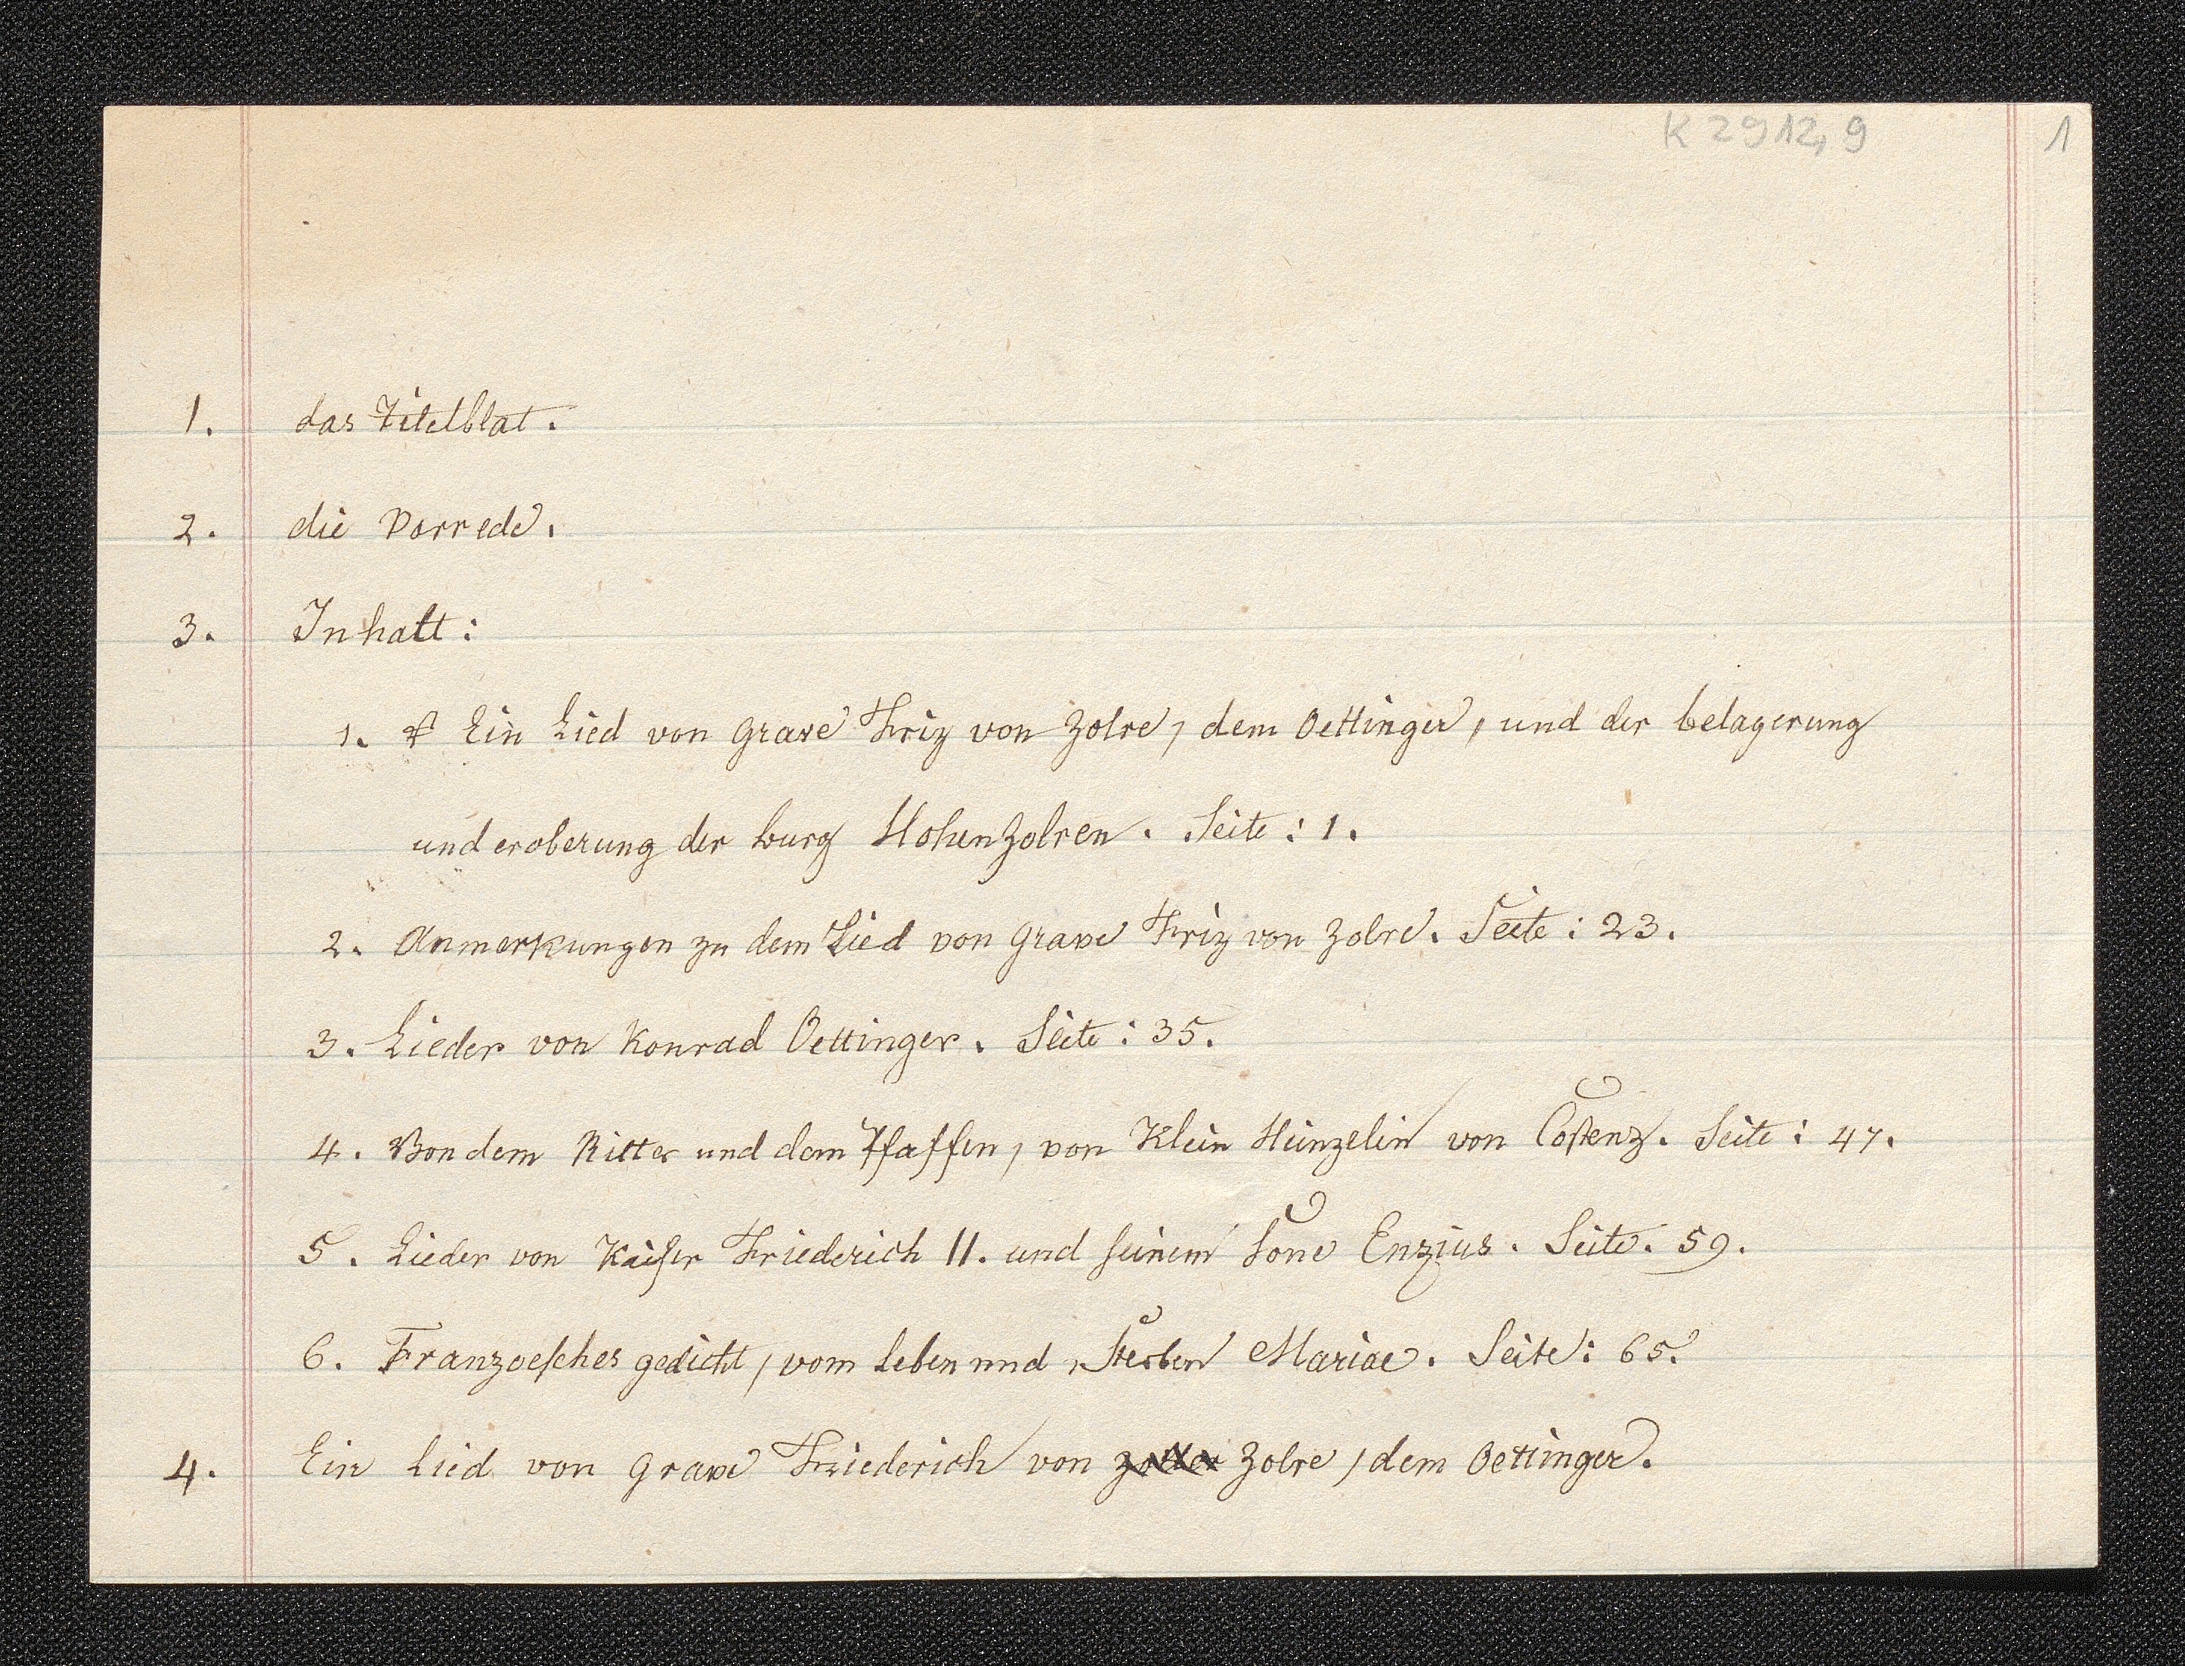 K 2912,9 1
1. das Titelblat.
2. die Vorrede.
3. Inhalt:
1. Ein Lied von Grave Friz von Zolre, dem Oettinger, und der belagerung
und eroberung der burg Hohenzolren. Seite: 1.
2. Anmerkungen zu dem Lied von Grave Friz von Zolre. Seite: 23.
3. Lieder von Konrad Oettinger. Seite: 35.
4. Von dem Ritter und dem Pfaffen, von Klein Heinzelin von Costenz. Seite: 47.
5. Lieder von Kaiser Friederich II. und seinem Sone Enzius. Seite. 59.
6. Franzoesches gedicht, vom Leben und Sterben Mariae. Seite: 65.
4. Ein Lied von Grave Friederich von Zolre, dem Oettinger.